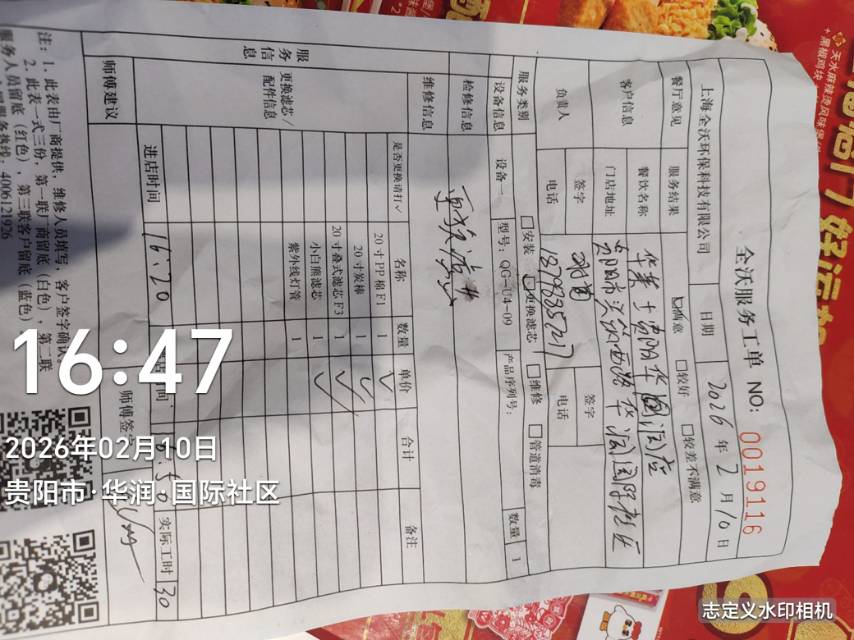 全沃服务工单 NO: 0019116
上海全沃环保科技有限公司 日期 2026年2月10日
餐厅意见 服务结果 ☑满意 □较好 □较差不满意
客户信息 餐饮名称 华莱士贵阳华润店
门店地址 贵阳市 华润国际社区
负责人 签字 签字
电话 电话
服务类别 □安装 ☑更换滤芯 □维修 □管道消毒
设备信息 设备一 型号: QG-U4-09 产品序列号: 数量 1
检修信息 更换滤芯
维修信息
服务信息
更换滤芯/配件信息 是否更换请打√ 名称 数量 单价 合计 备注
20寸PP棉F1 1 ✓
20寸炭棒 1 ✓
20寸叠式滤芯F3 1 ✓
小白熊滤芯 1 ✓
紫外线灯管 1
进店时间 16:20 实际工时 30
师傅建议 师傅签字
注: 1. 此表由厂商提供、维修人员填写,客户签字确认
2. 此表一式三份,第一联厂商留底(白色),第二联
服务人员留底(红色),第三联客户留底(蓝色)
服务热线: 4006121926
16:47
2026年02月10日
贵阳市·华润·国际社区
志定义水印相机
天水麻辣烫风味堡
黑椒鸡块
门好运